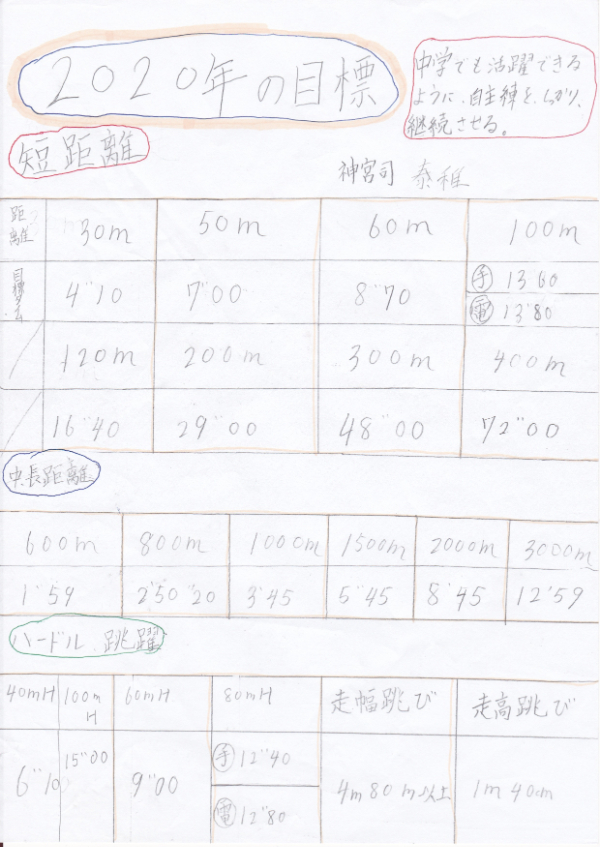 2020年の目標
中学でも活躍できる
ように、自主練を、しっかり、
継続させる。
短距離
神宮司 泰稚
距離 30m 50m 60m 100m
目標タイム 4"10 7"00 8"70 手 13"60
電 13"80
120m 200m 300m 400m
16"40 29"00 48"00 72"00
中.長距離
600m 800m 1000m 1500m 2000m 3000m
1'59 2'50"20 3'45 5'45 8'45 12'59
ハードル.跳躍
40mH 100mH 60mH 80mH 走幅跳び 走高跳び
6"10 15"00 9"00 手 12"40 4m80m以上 1m40cm
電 12"80